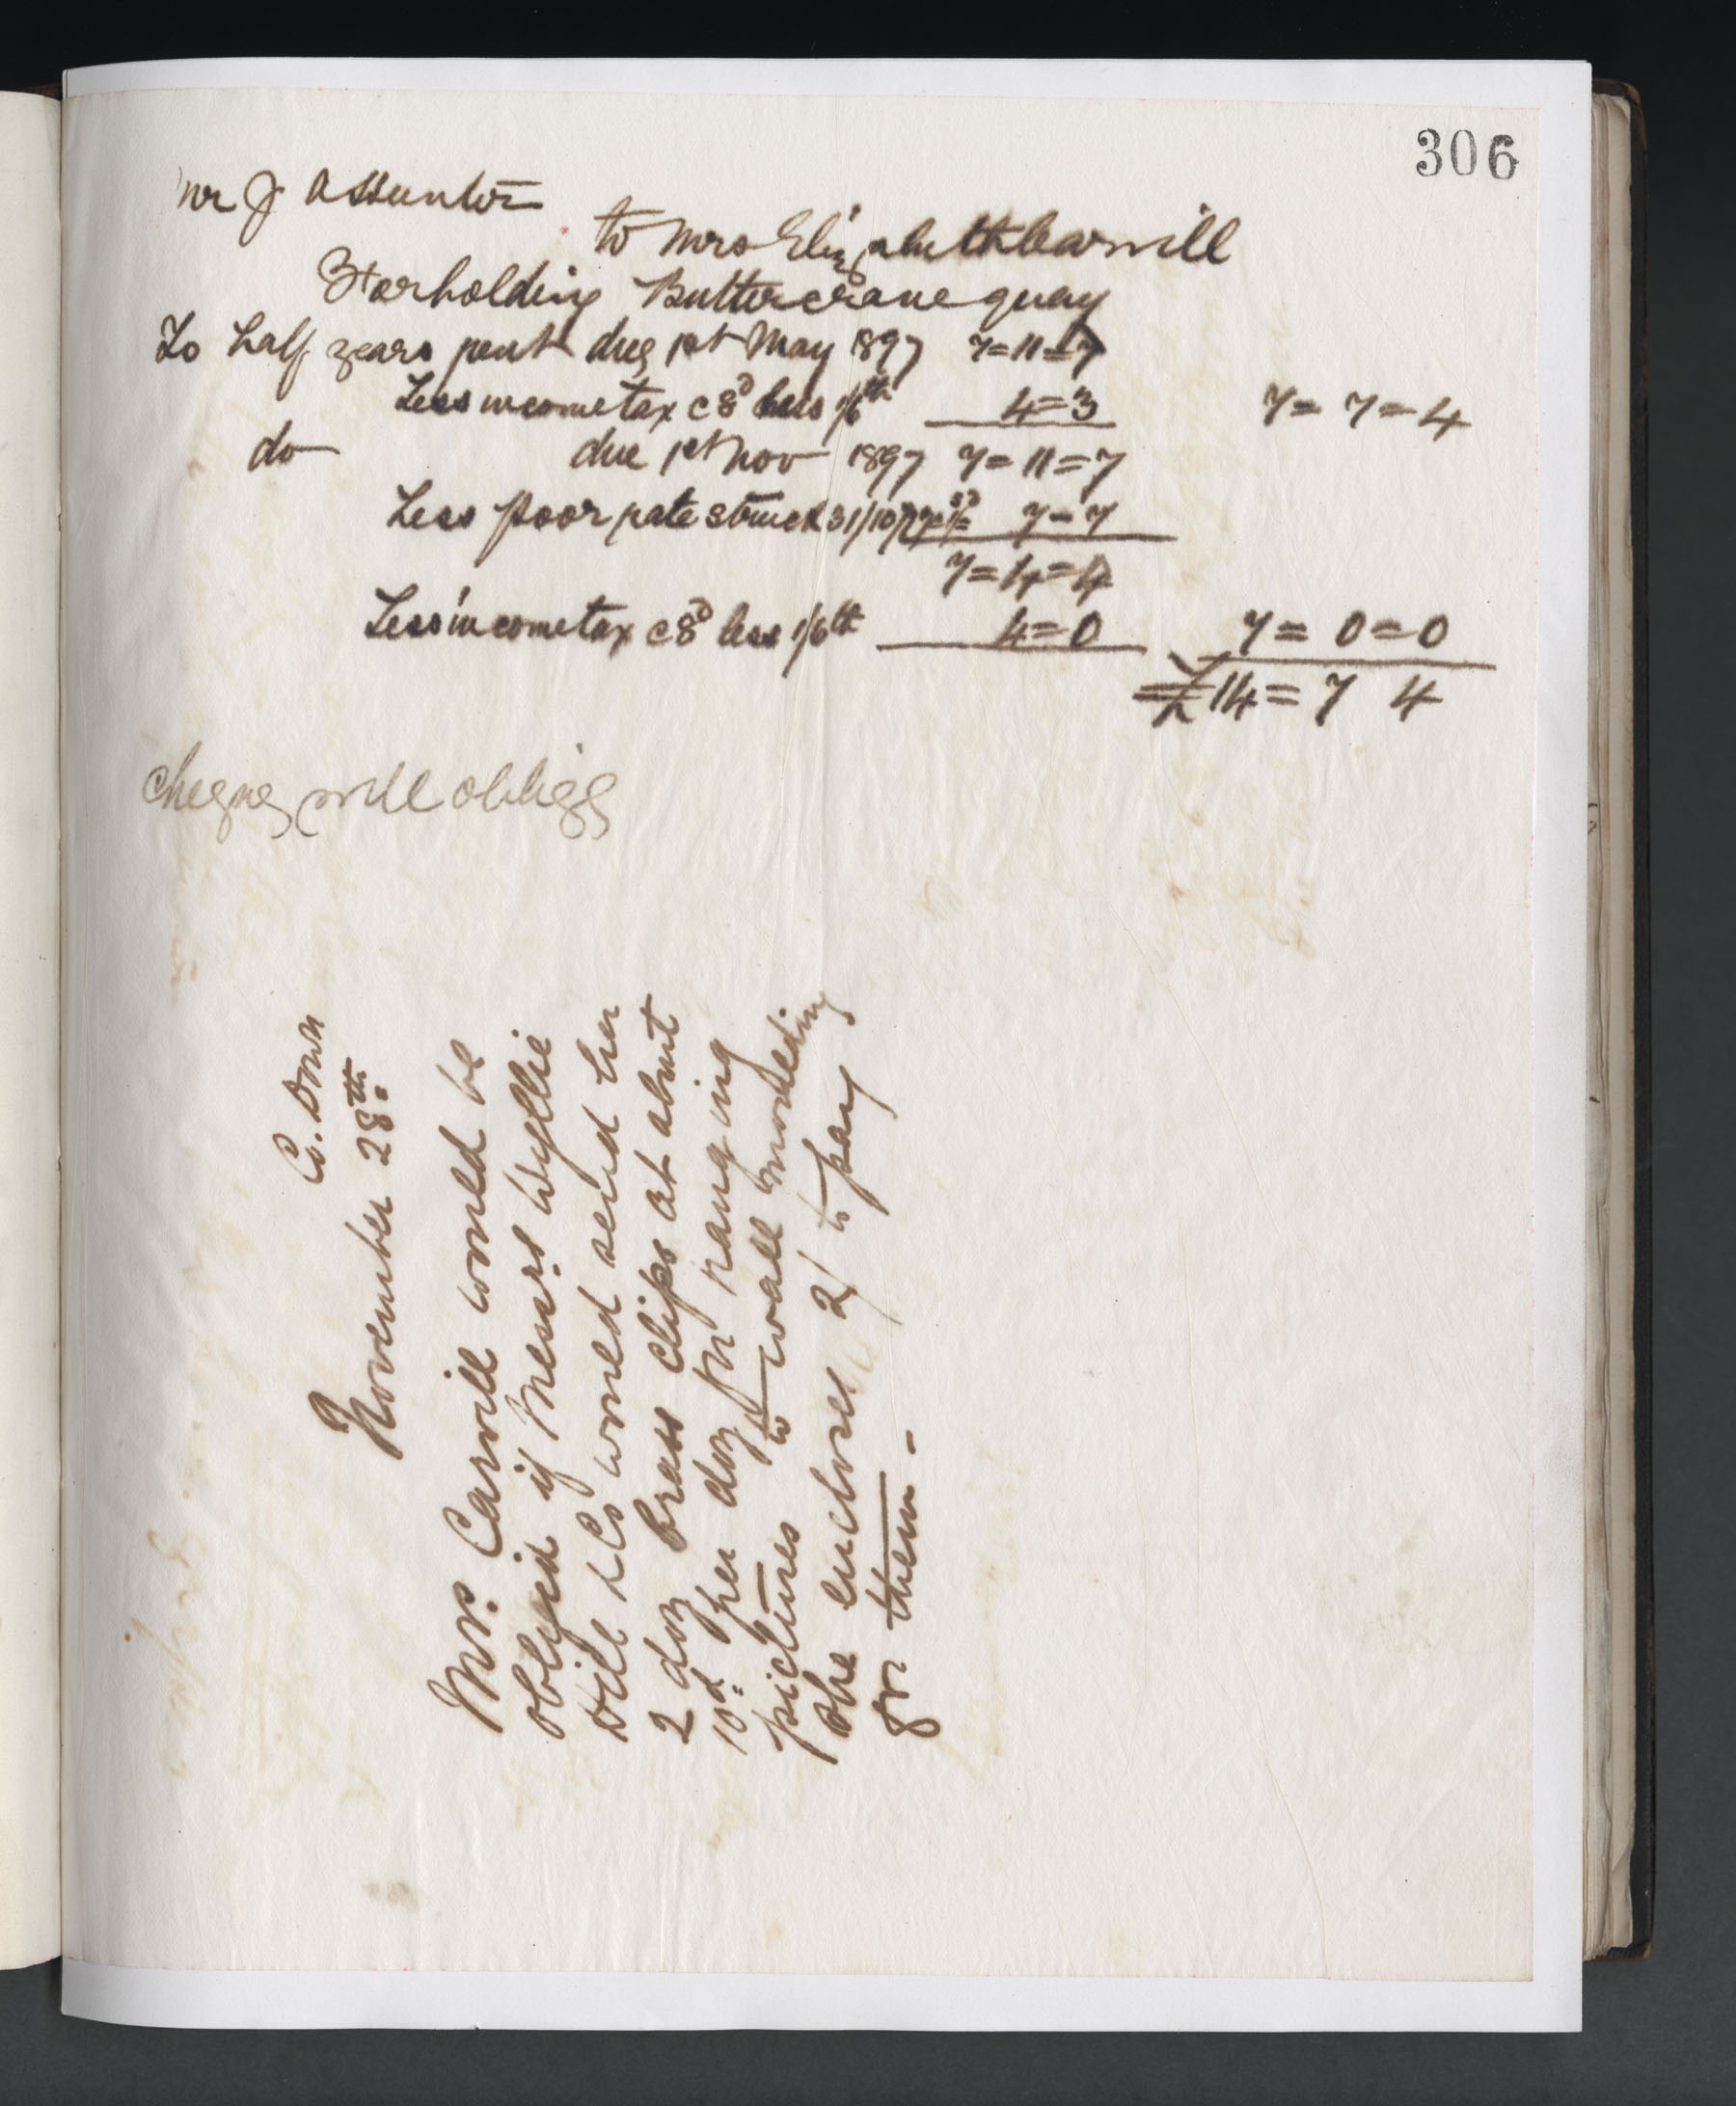 306
Mr J Assunton
to Mrs Elizabeth Carvill
For holding Buttercrane quay
To half years rent due 1st May 1897 7=11=7
Less income tax @ 8d less 1/6th 4=3 7=7=4
do due 1st Nov 1897 7=11=7
Less Poor rate struck 31/10/97 7=7
7=4=4
Less income tax @ 8d less 1/6th 4=0 7=0=0
£14=7 4
cheque will oblige
Co. Down
November 28th.
Mrs. Carvill would be
obliged if Messrs Wyllie
Hill & Co would send her
2 doz brass clips at about
10d per doz for hanging
pictures to wall moulding
she encloses 2/ to pay
for them -